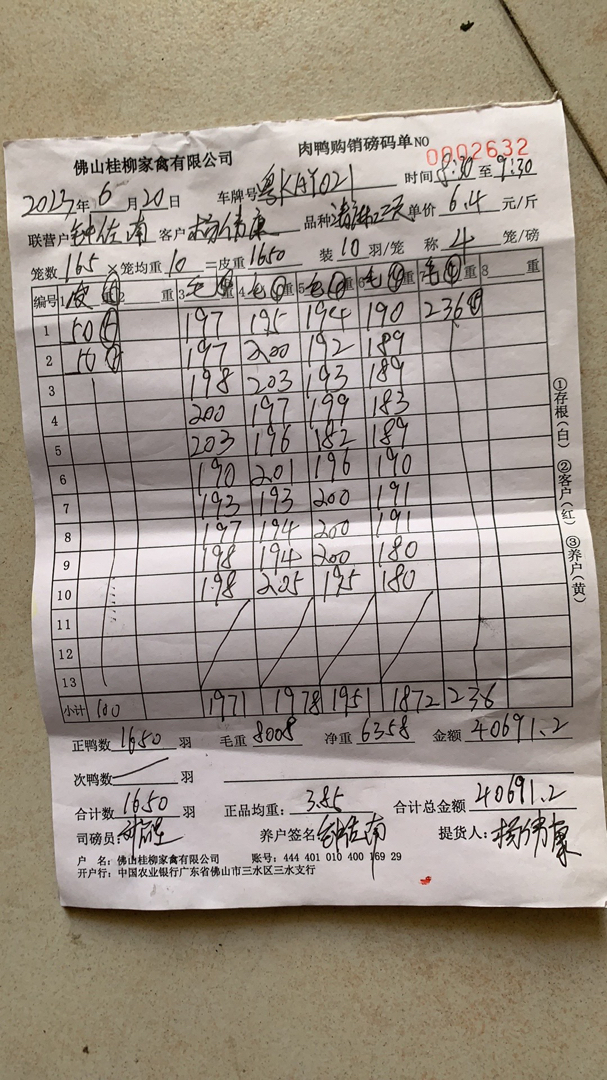 佛山桂柳家禽有限公司 肉鸭购销磅码单NO 0002632
2023年6月20日 车牌号 粤KAY021 时间 8:30 至 9:30
联营户 钟佐南 客户 杨伟康 品种 单价 6.4 元/斤
笼数 165 ×笼均重 10 =皮重 1650 装 10 羽/笼 称 4 笼/磅
编号 1 皮④重 2 重 3 毛④重 4 毛④重 5 毛④重 6 毛④重 7 毛⑤重 8 重
1 50⑤ 197 195 194 190 236⑤
2 50⑤ 197 200 192 189
3 198 203 193 189
4 200 197 199 183
5 203 196 182 189
6 190 201 196 190
7 193 193 200 191
8 197 194 200 191
9 198 194 200 180
10 198 205 195 180
11
12
13
小计 100 1971 1978 1951 1872 236
①存根(白) ②客户(红) ③养户(黄)
正鸭数 1650 羽 毛重 8008 净重 6358 金额 40691.2
次鸭数 羽
合计数 1650 羽 正品均重: 3.85 合计总金额 40691.2
司磅员: 养户签名 钟佐南 提货人: 杨伟康
户 名: 佛山桂柳家禽有限公司 账号: 444 401 010 400 169 29
开户行: 中国农业银行广东省佛山市三水区三水支行